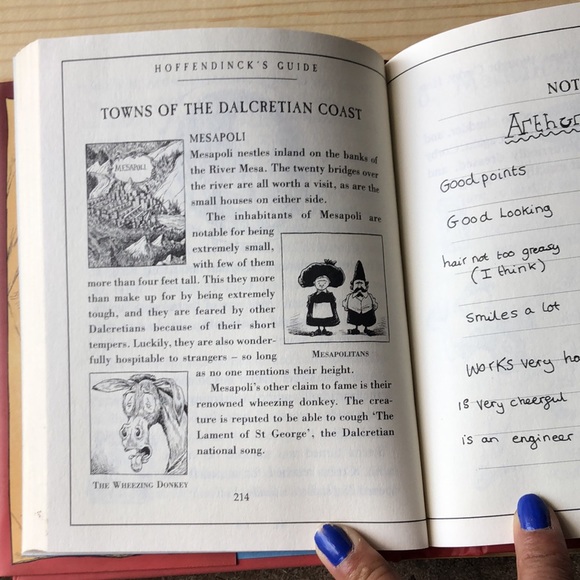 HOFFENDINCK'S GUIDE
TOWNS OF THE DALCRETIAN COAST
MESAPOLI
MESAPOLI
Mesapoli nestles inland on the banks of
the River Mesa. The twenty bridges over
the river are all worth a visit, as are the
small houses on either side.
The inhabitants of Mesapoli are
notable for being
extremely small,
with few of them
more than four feet tall. This they more
than make up for by being extremely
tough, and they are feared by other
Dalcretians because of their short
tempers. Luckily, they are also wonder-
fully hospitable to strangers – so long
as no one mentions their height.
MESAPOLITANS
Mesapoli's other claim to fame is their
renowned wheezing donkey. The crea-
ture is reputed to be able to cough 'The
Lament of St George', the Dalcretian
national song.
THE WHEEZING DONKEY
214
NOT
Arthur
Good points
Good Looking
hair not too greasy
(I think)
smiles a lot
works very
is very cheerful
is an engineer